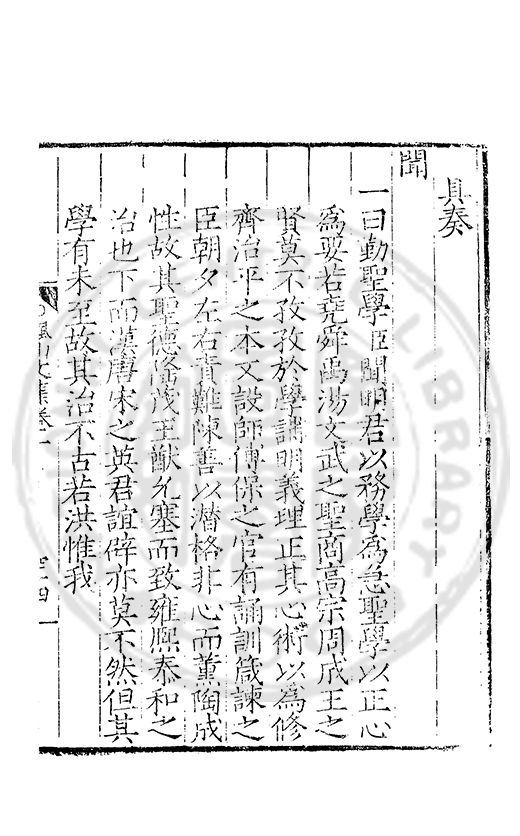 具奏
聞
一曰勤聖學臣聞明君以務學為急聖學以正心
為要若堯舜禹湯文武之聖商高宗周成王之
賢莫不孜孜於學講明義理正其心術以為修
齊治平之本又設師傅保之官有誦訓箴諫之
臣朝夕左右責難陳善以潛格非心而薰陶成
性故其聖德隆茂王猷允塞而致雍熙泰和之
治也下而漢唐宋之英君誼辟亦莫不然但其
學有未至故其治不古若洪惟我
山文集卷一
LIBRARY